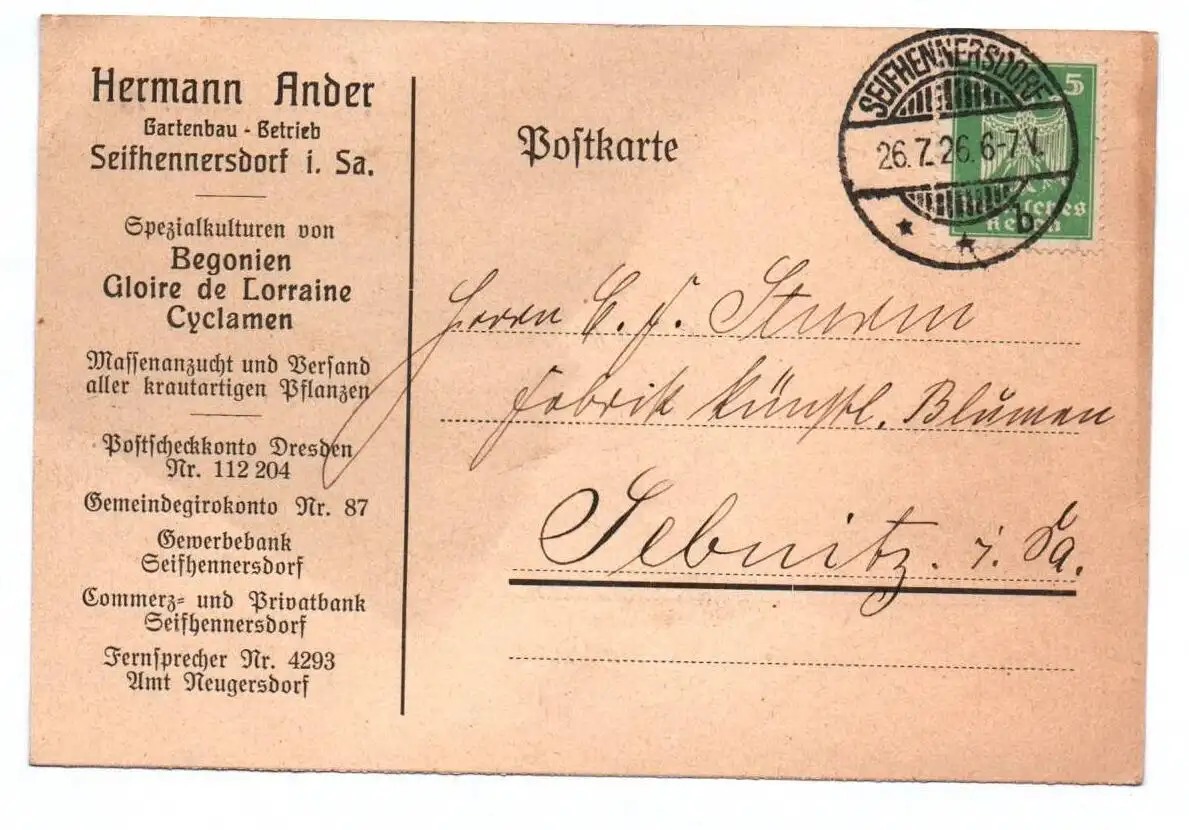 Hermann Ander
Gartenbau - Betrieb
Seifhennersdorf i. Sa.
Spezialkulturen von
Begonien
Gloire de Lorraine
Cyclamen
Massenanzucht und Versand
aller krautartigen Pflanzen
Postscheckkonto Dresden
Nr. 112 204
Gemeindegirokonto Nr. 87
Gewerbebank
Seifhennersdorf
Commerz- und Privatbank
Seifhennersdorf
Fernsprecher Nr. 4293
Amt Neugersdorf
Postkarte
SEIFHENNERSDORF
26.7.26.6-7V.
b
5
Herrn C. F. Sturm
Fabrik künstl. Blumen
Sebnitz. i. Sa.